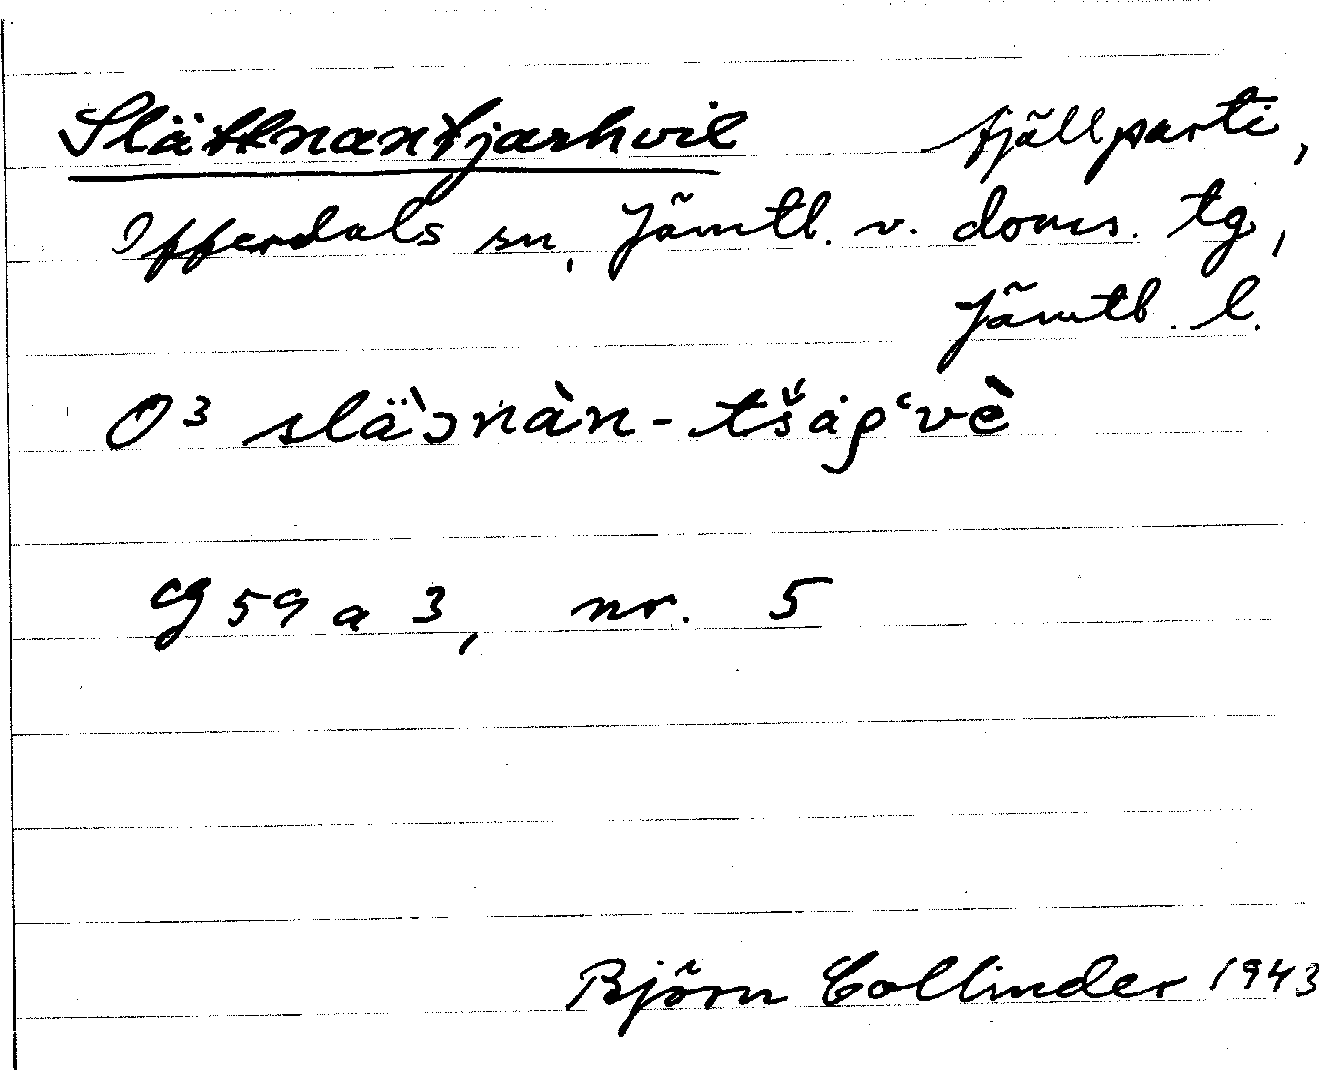 Slättnantjarhvie fjällparti,
Offerdals sn, Jämtl. v. doms. tg,
Jämtl. l.
O³ slä̀ɔnàn-tšáρ‘vè
59 a 3, nr. 5
Björn Collinder 1943